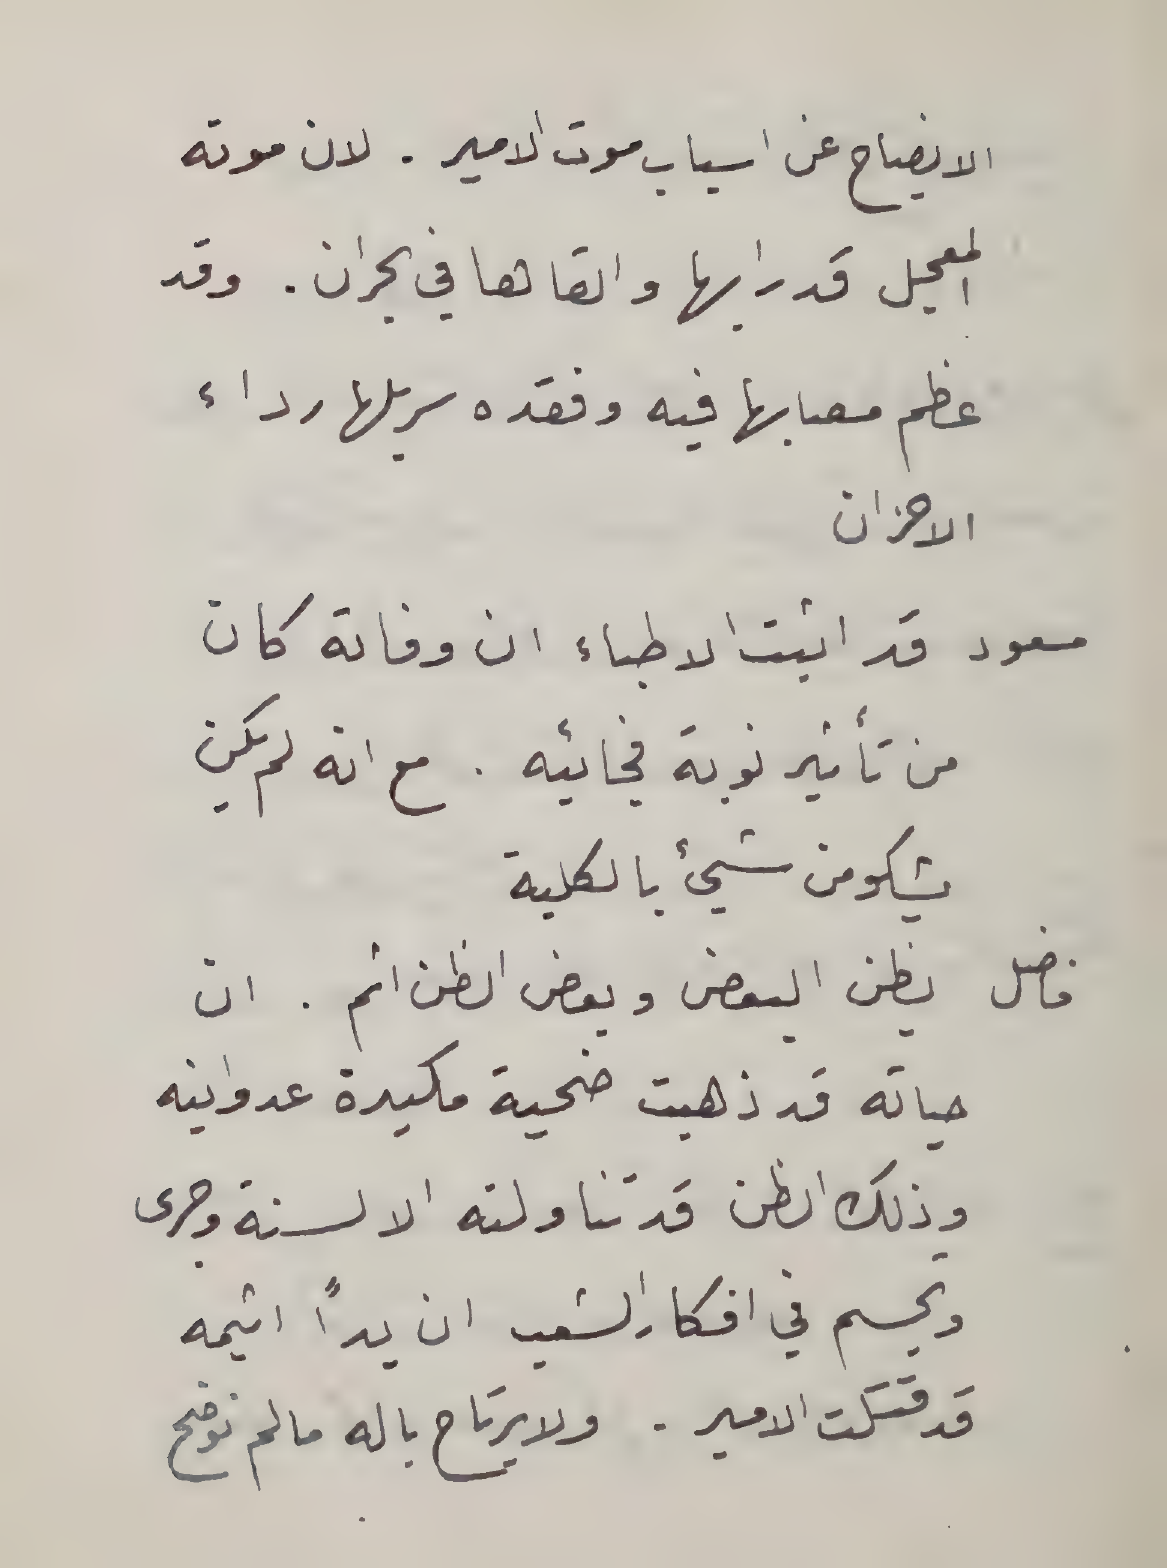 الايضاح عن اسباب موت الامير . لان موته
المعجل قد رابها والقاها في بحران . وقد
عظم مصابها فيه وفقده سربلها رداء
الاحزان
مسعود قد اثبت الاطباء ان وفاته كان
من تأثير نوبة فجائيه . مع انه لم يكن
يشكو من شيئ بالكلية
فاضل يظن البعض وبعض الظن اثم . ان
حياته قد ذهبت ضحية مكيدة عدوانيه
وذلك الظن قد تناولته الالسنة وجرى
وتجسم في افكار الشعب ان يداً اثيمه
قد قتلت الامير . ولا يرتاح باله مالم نوضح